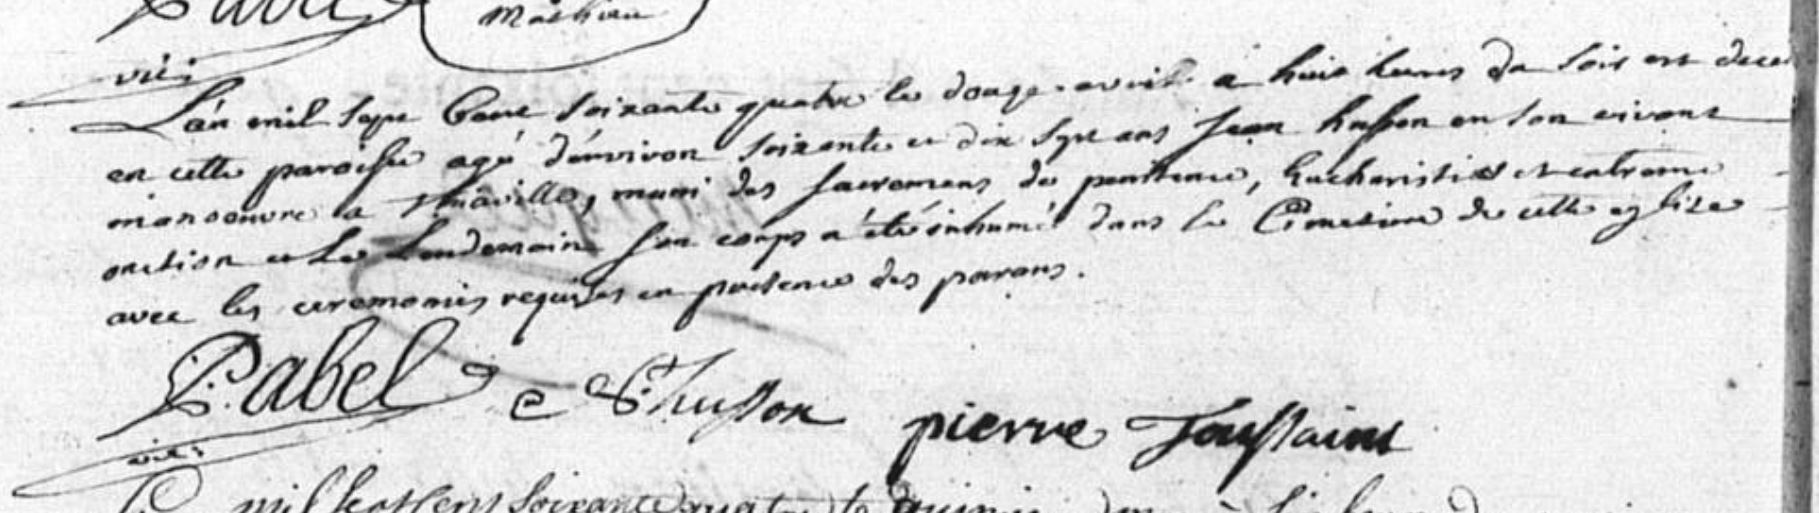 Mathieu
vic:
L'an mil sept Cent soixante quatre le douze avril a huit heures du soir est decedé
en cette paroisse agé d'environ soixante et dix sept ans Jean husson en son vivant
manoeuvre a , muni des sacremens de penitence, Eucharistie et extreme
onction et Le Lendemain son corps a été inhumé dans le Cimetiere de cette eglise
avec les ceremonies requises en presence des parans.
P. abel C husson pierre Toussaint
vic:
mil sept Cent soixante quatre le